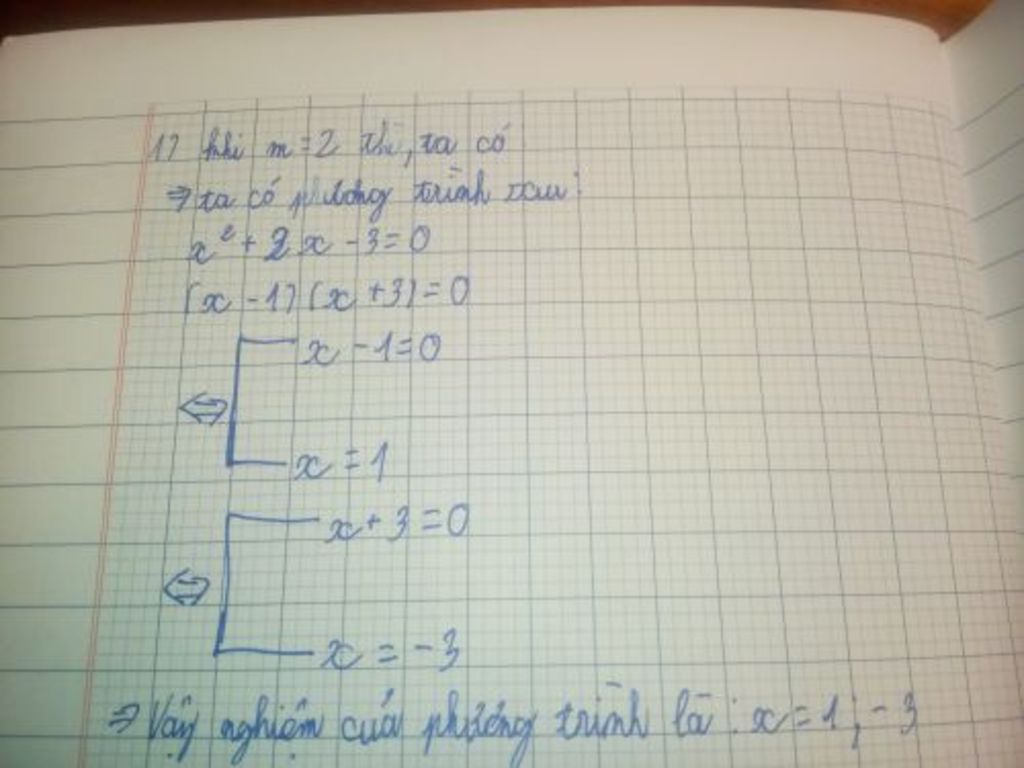 1) khi m = 2 thì, ta có
⇒ ta có phương trình sau:
x² + 2x - 3 = 0
(x - 1) (x + 3) = 0
x - 1 = 0
⇔
x = 1
x + 3 = 0
⇔
x = -3
⇒ Vậy nghiệm của phương trình là: x = 1; -3